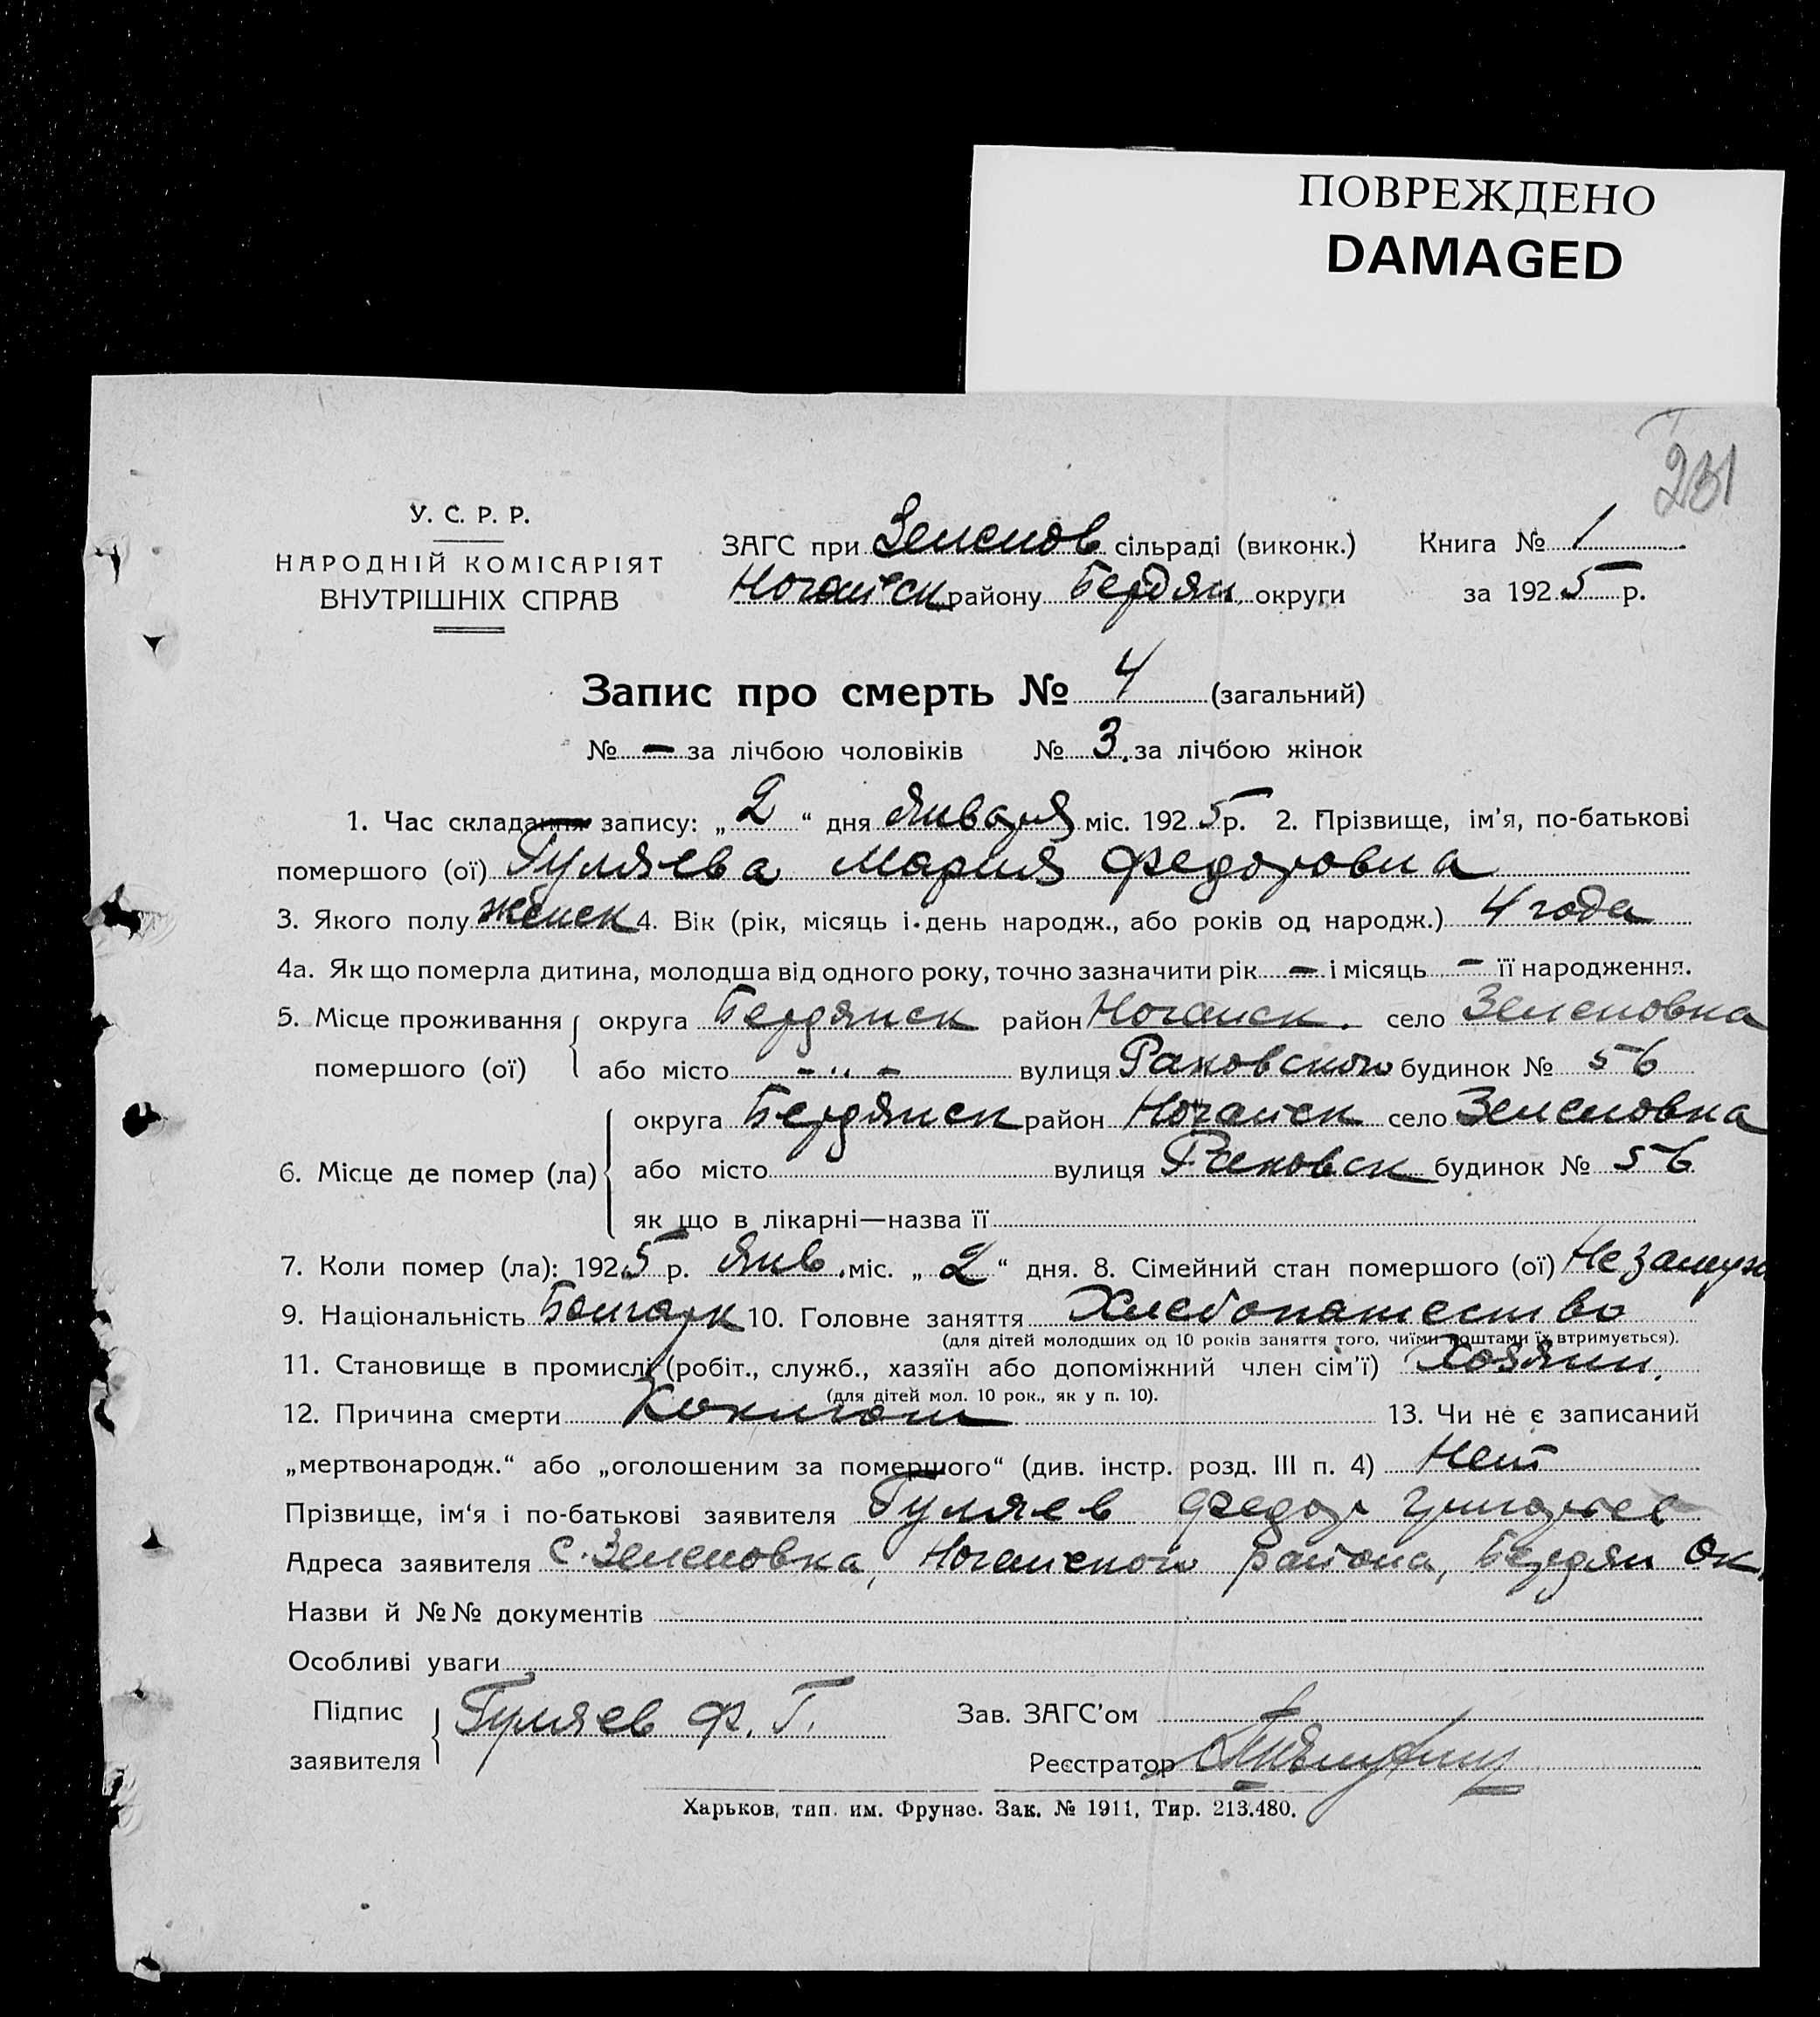 ПОВРЕЖДЕНО
DAMAGED
231
У. С. Р. Р.
НАРОДНІЙ КОМІСАРІЯТ
ВНУТРІШНІХ СПРАВ
ЗАГС при Зеленов сільраді (виконк.) Книга № 1
Ногайск району Бердян. округи за 1925 р.
Запис про смерть № 4 (загальний)
№ — за лічбою чоловіків № 3. за лічбою жінок
1. Час складання запису: „ 2 “ дня Января міс. 1925 р. 2. Прізвище, ім’я, по-батькові
помершого (ої) Гуляева Мария Федоровна
3. Якого полу женск 4. Вік (рік, місяць і день народж., або років од народж.) 4 года
4а. Як що померла дитина, молодша від одного року, точно зазначити рік — і місяць — її народження.
5. Місце проживання округа Бердянск район Ногайск. село Зеленовка
помершого (ої) або місто - „ - вулиця Раковского будинок № 56
округа Бердянск район Ногайск село Зеленовка
6. Місце де помер (ла) або місто вулиця Раковск будинок № 56
як що в лікарні—назва її
7. Коли помер (ла): 1925 р. Янв. міс. „ 2 “ дня. 8. Сімейний стан помершого (ої) Незамуж
9. Національність Болгарк 10. Головне заняття Хлебопашество
(для дітей молодших од 10 років заняття того, чиїми коштами їх втримується).
11. Становище в промислі (робіт., служб., хазяїн або допоміжний член сім’ї) Хозяин.
(для дітей мол. 10 рок., як у п. 10).
12. Причина смерти 13. Чи не є записаний
„мертвонародж.“ або „оголошеним за помершого“ (див. інстр. розд. III п. 4) Нет
Прізвище, ім‘я і по-батькові заявителя Гуляев Федор Григорьев
Адреса заявителя С. Зеленовка, Ногайского района, Бердян Ок.
Назви й №№ документів
Особливі уваги
Підпис
заявителя Гуляев Ф. Г. Зав. ЗАГС’ом
Реєстратор
Харьков, тип. им. Фрунзе. Зак. № 1911, Тир. 213.480.